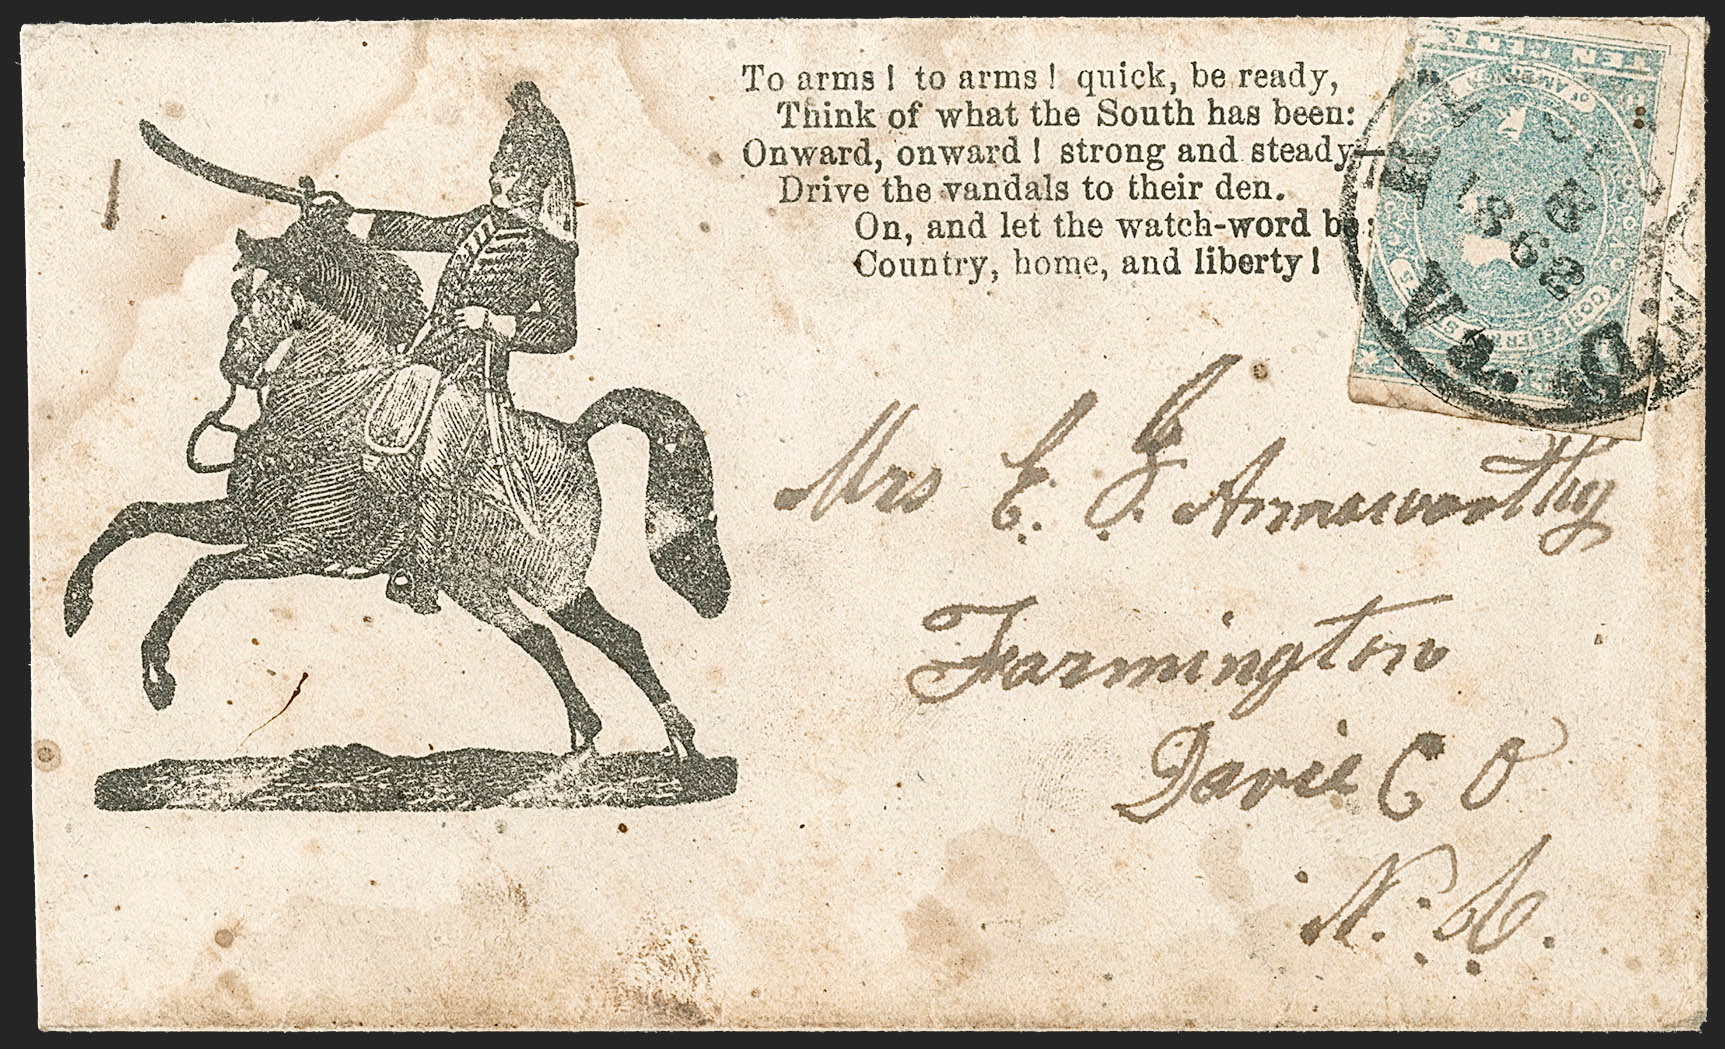 To arms! to arms! quick, be ready,
Think of what the South has been:
Onward, onward! strong and steady,—
Drive the vandals to their den.
On, and let the watch-word be:
Country, home, and liberty!
TEN TEN
OF AMERICA
1862
VA.
Mrs E. J. Armsworthy
Farmington
Davie C O
N. C.